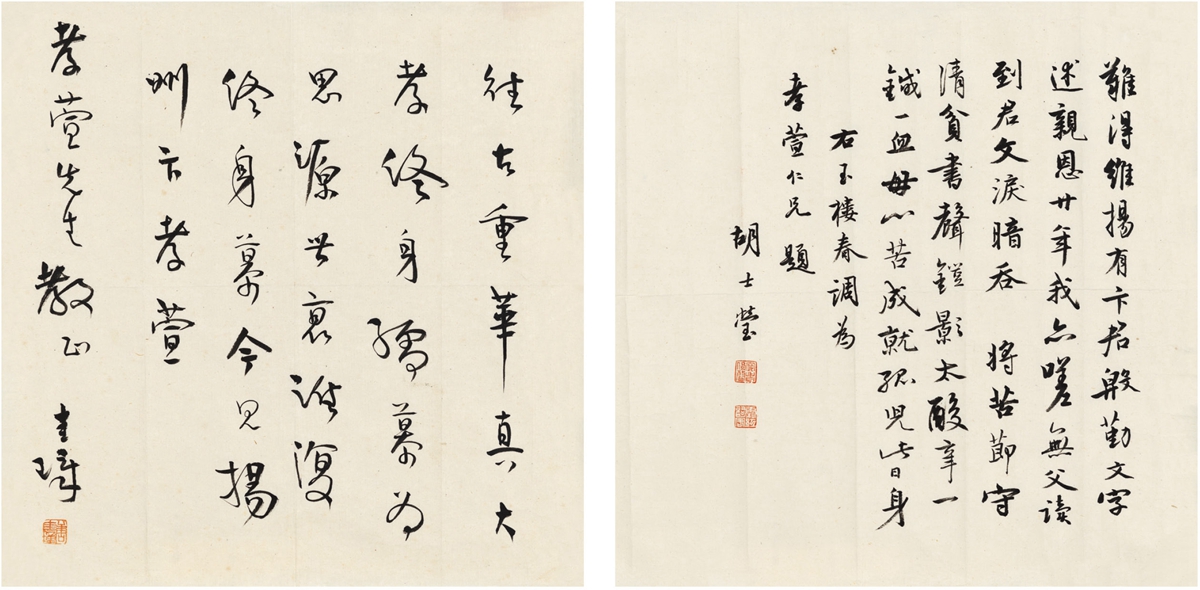 難得維揚有卞君殷勤文字
述親恩廿年我亦嗟無父讀
到君文淚暗吞 將苦節守
清貧書聲鐙影太酸辛一
鍼一血母心苦成就孤兒此日身
右玉樓春調為
孝萱仁兄題
胡士瑩
往古重華真大
孝終身孺慕為
思源世衰誰復
終身慕今見揚
州卞孝萱
孝萱先生教正 圭璋